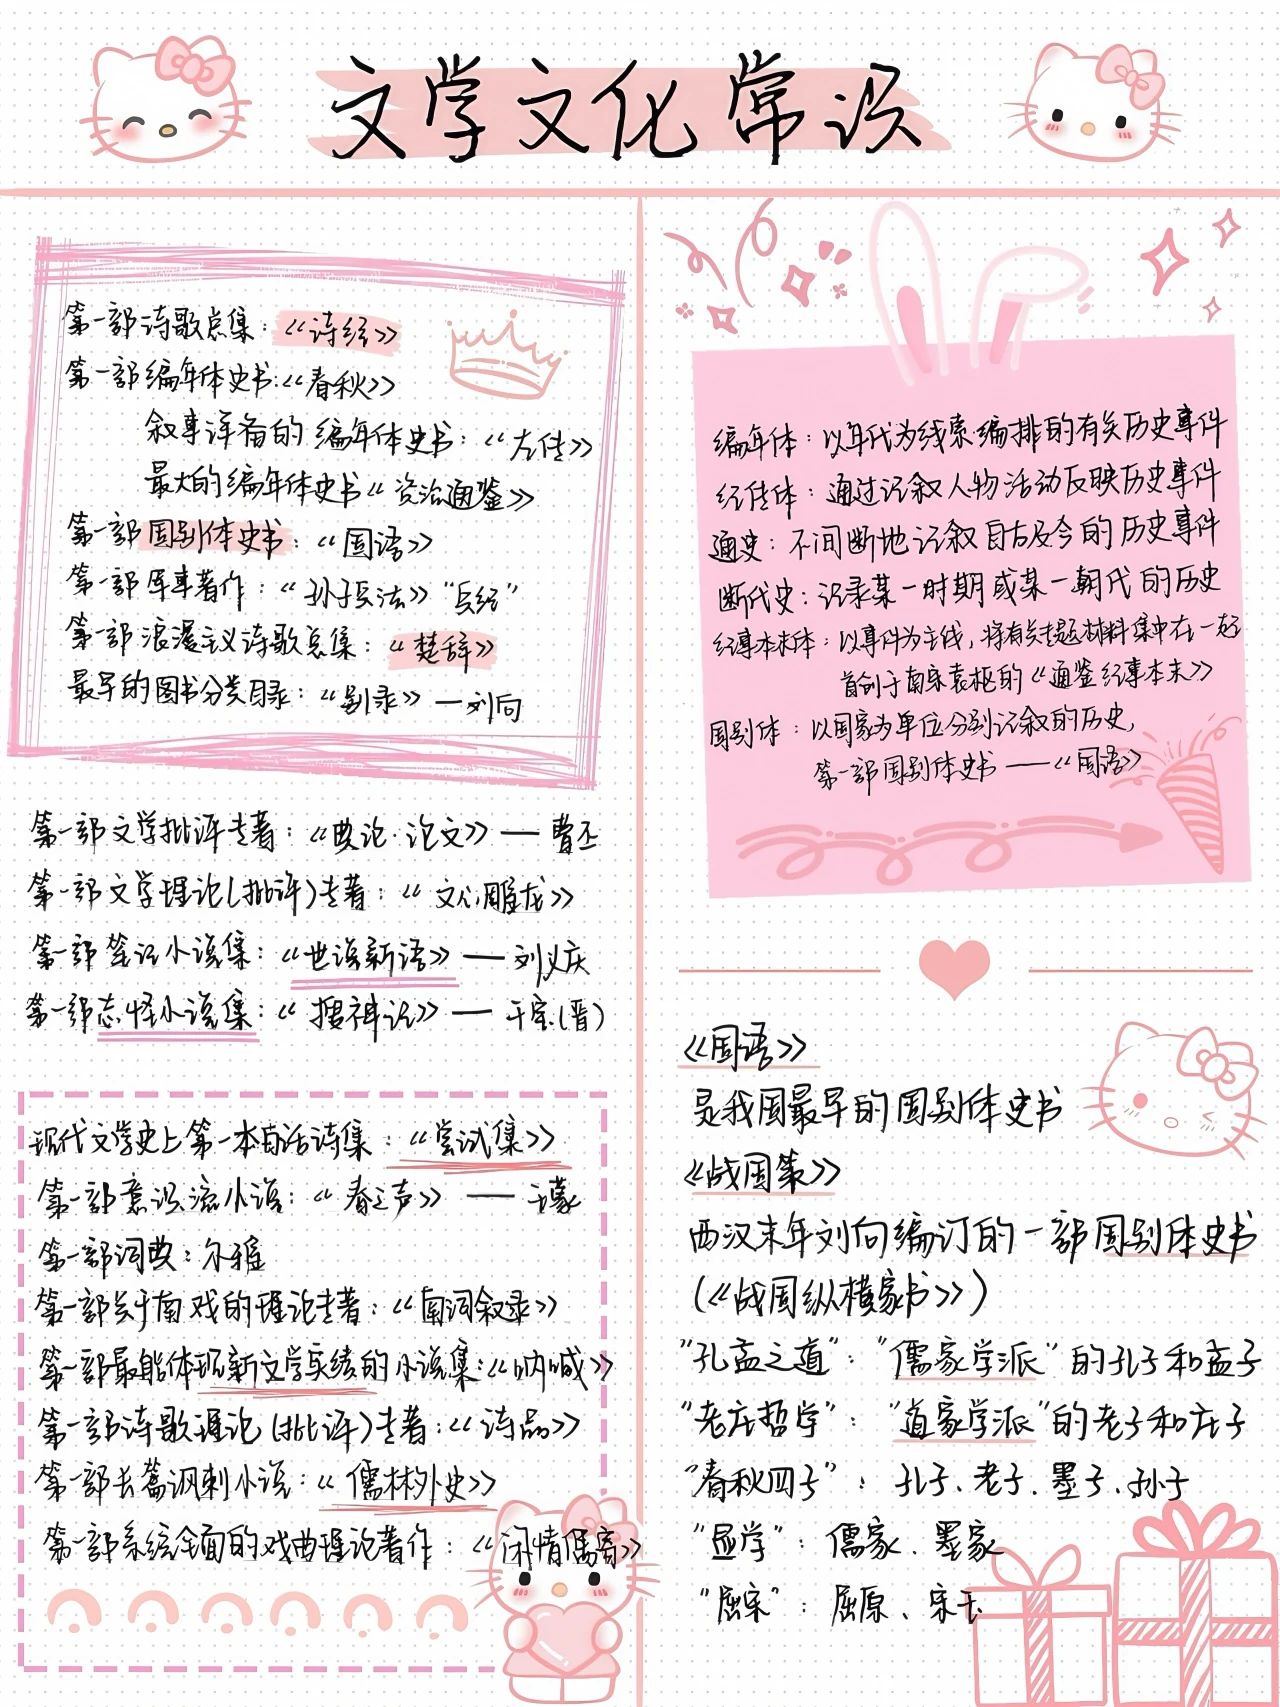 文学文化常识
第一部诗歌总集：《诗经》
第一部编年体史书：《春秋》
叙事详备的编年体史书：《左传》
最大的编年体史书《资治通鉴》
第一部国别体史书：《国语》
第一部军事著作：《孙子兵法》"兵经"
第一部浪漫主义诗歌总集：《楚辞》
最早的图书分类目录：《别录》—刘向
第一部文学批评专著：《典论·论文》— 曹丕
第一部文学理论(批评)专著：《文心雕龙》
第一部笔记小说集：《世说新语》— 刘义庆
第一部志怪小说集：《搜神记》— 干宝(晋)
现代文学史上第一本白话诗集：《尝试集》
第一部意识流小说：《春之声》— 王蒙
第一部词典：尔雅
第一部关于南戏的理论专著：《南词叙录》
第一部最能体现新文学实绩的小说集：《呐喊》
第一部诗歌理论(批评)专著：《诗品》
第一部长篇讽刺小说：《儒林外史》
第一部系统全面的戏曲理论著作：《闲情偶寄》
编年体：以年代为线索编排的有关历史事件
纪传体：通过记叙人物活动反映历史事件
通史：不间断地记叙自古及今的历史事件
断代史：记录某一时期或某一朝代的历史
纪事本末体：以事件为主线，将有关专题材料集中在一起
首创于南宋袁枢的《通鉴纪事本末》
国别体：以国家为单位分别记叙的历史，
第一部国别体史书——《国语》
《国语》
是我国最早的国别体史书
《战国策》
西汉末年刘向编订的一部国别体史书
(《战国纵横家书》)
"孔孟之道"："儒家学派"的孔子和孟子
"老庄哲学"："道家学派"的老子和庄子
"春秋四子"：孔子、老子、墨子、孙子
"显学"：儒家、墨家
"屈宋"：屈原、宋玉